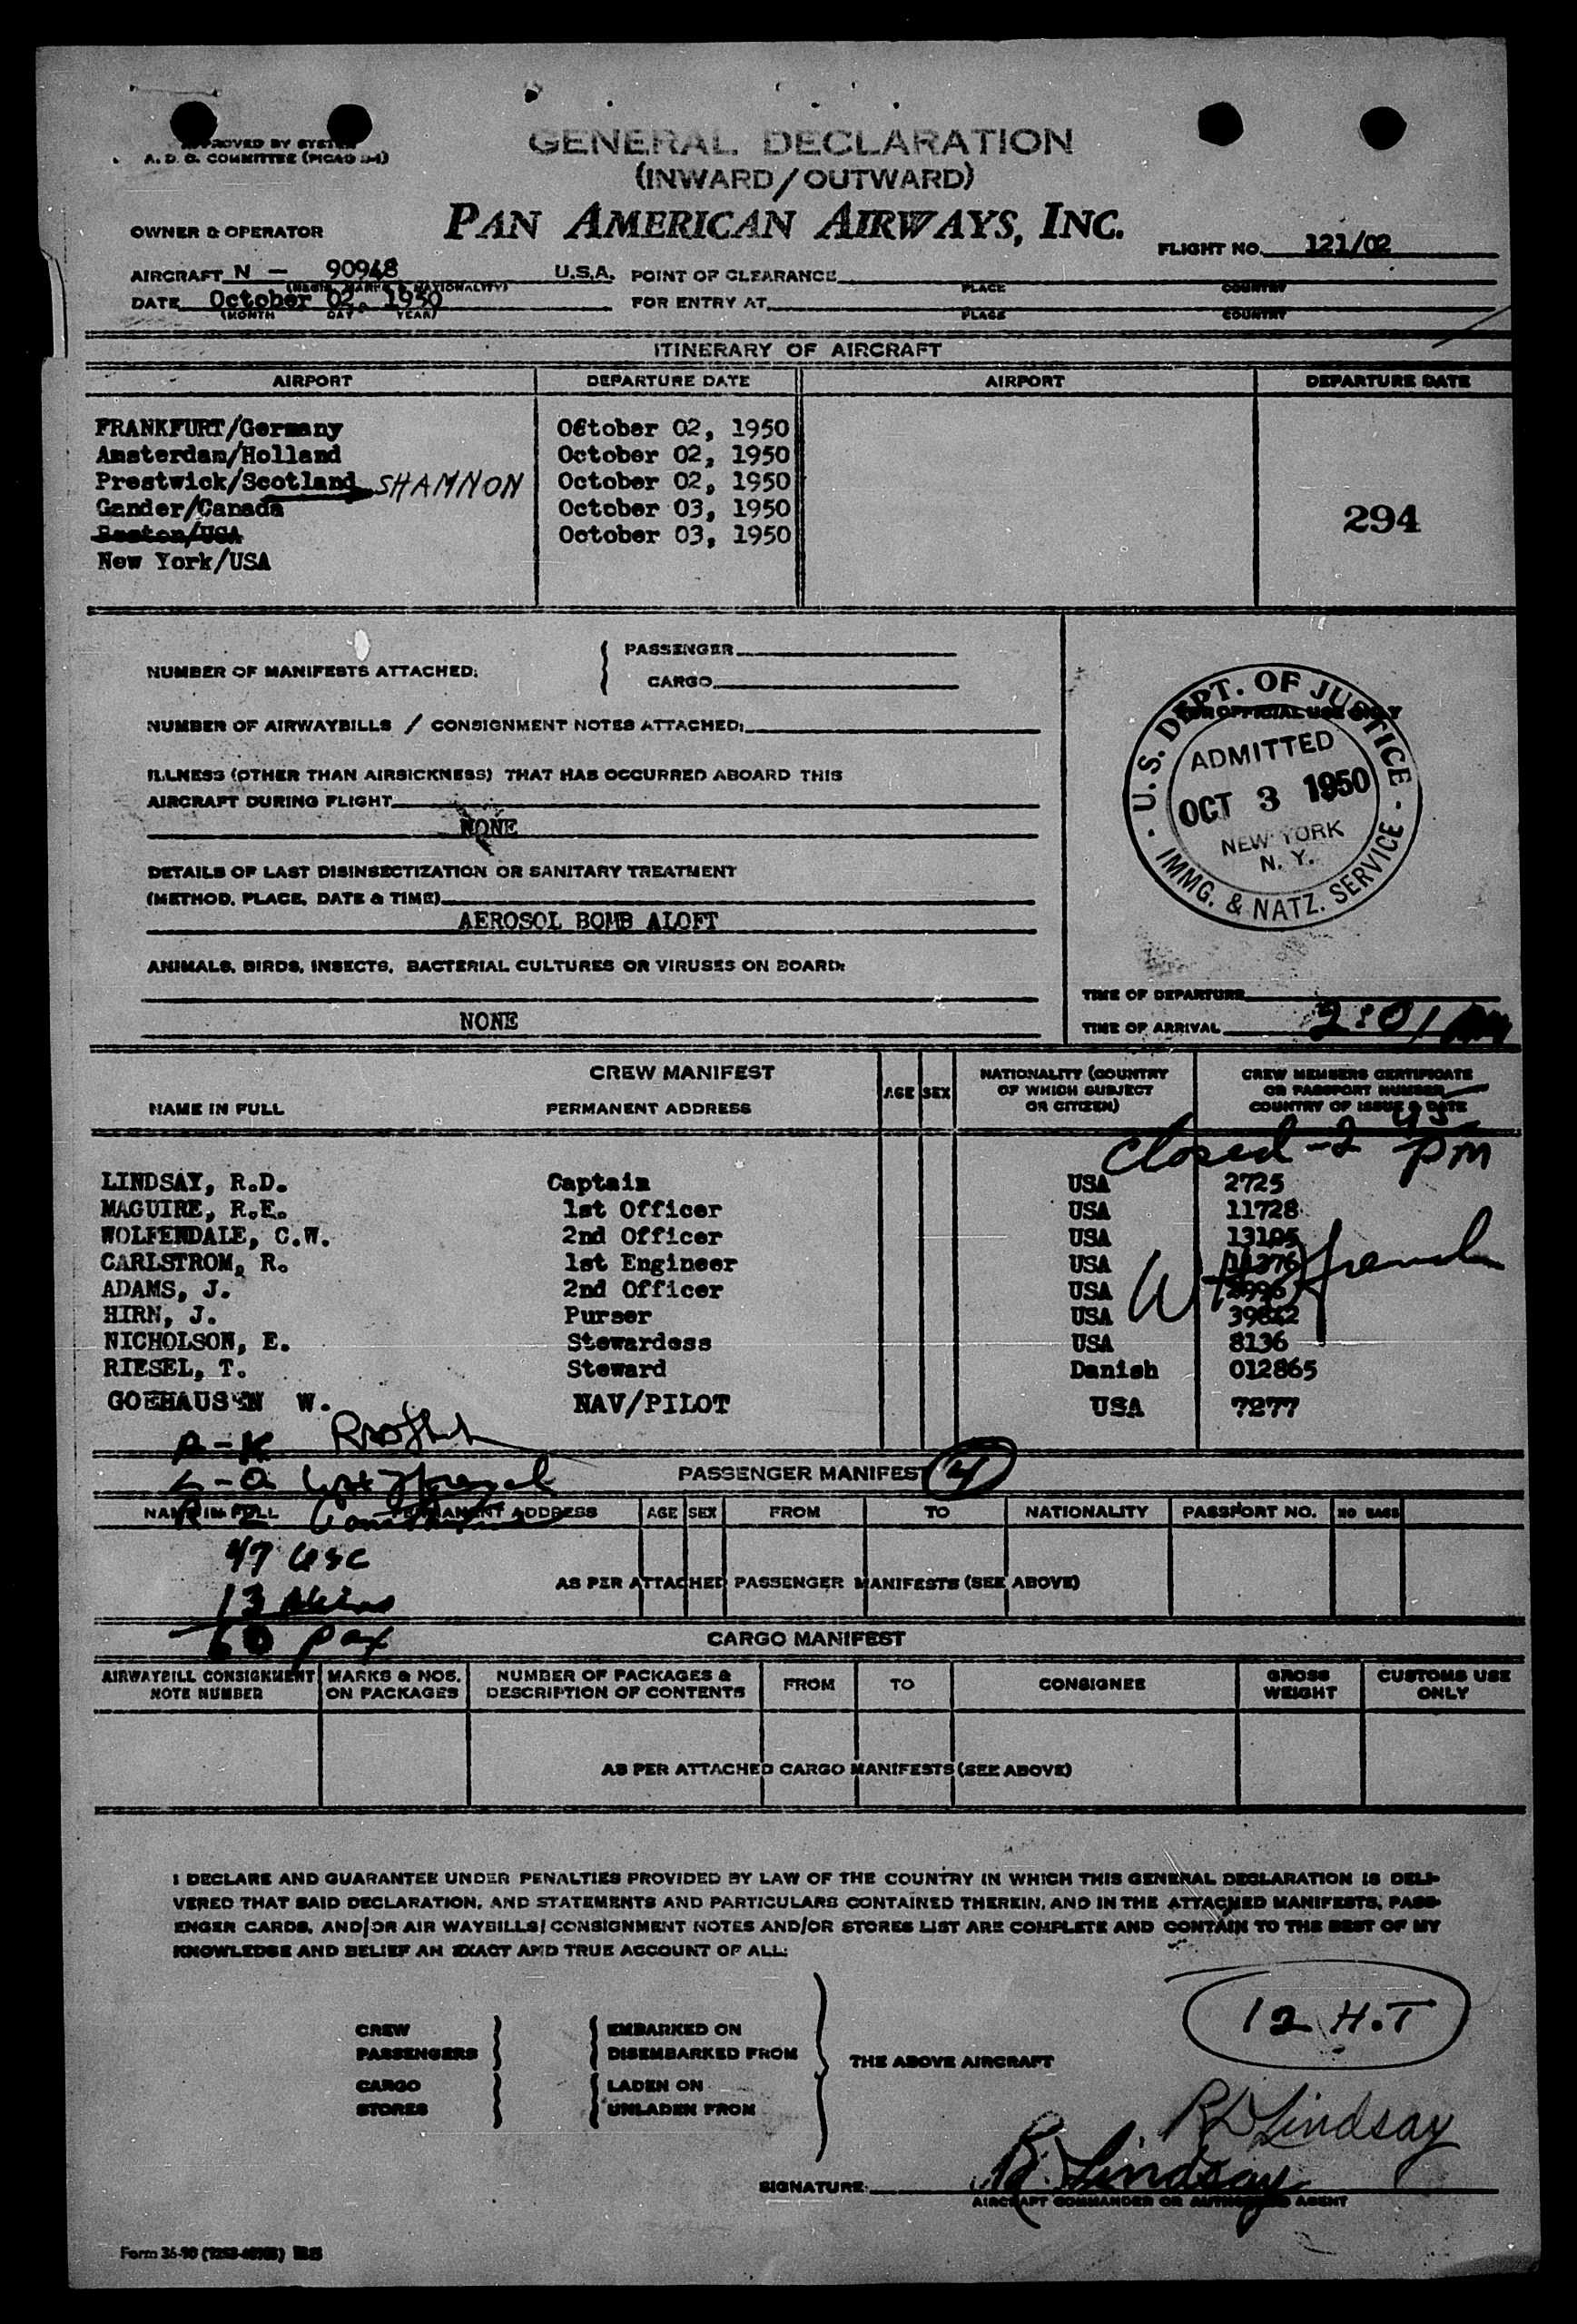 APPROVED BY SYSTEM
A. D. C. COMMITTEE (PICAO
GENERAL DECLARATION
(INWARD/OUTWARD)
OWNER & OPERATOR
PAN AMERICAN AIRWAYS, INC.
FLIGHT NO. 121/02
AIRCRAFT N - 90948 U.S.A. POINT OF CLEARANCE
(REGIS. MARKS & NATIONALITY) PLACE COUNTRY
DATE October 02, 1950 FOR ENTRY AT
(MONTH DAY YEAR) PLACE COUNTRY
ITINERARY OF AIRCRAFT
AIRPORT DEPARTURE DATE AIRPORT DEPARTURE DATE
FRANKFURT/Germany October 02, 1950
Amsterdam/Holland October 02, 1950
Prestwick/Scotland SHANNON October 02, 1950
Gander/Canada October 03, 1950
294
Boston/USA October 03, 1950
New York/USA
NUMBER OF MANIFESTS ATTACHED:
PASSENGER
CARGO
NUMBER OF AIRWAYBILLS / CONSIGNMENT NOTES ATTACHED:
ILLNESS (OTHER THAN AIRSICKNESS) THAT HAS OCCURRED ABOARD THIS
AIRCRAFT DURING FLIGHT
NONE
DETAILS OF LAST DISINSECTIZATION OR SANITARY TREATMENT
(METHOD, PLACE, DATE & TIME)
AEROSOL BOMB ALOFT
ANIMALS, BIRDS, INSECTS, BACTERIAL CULTURES OR VIRUSES ON BOARD:
NONE
FOR OFFICIAL USE ONLY
U.S. DEPT. OF JUSTICE
ADMITTED
OCT 3 1950
NEW YORK
N. Y.
IMMG. & NATZ. SERVICE
TIME OF DEPARTURE
TIME OF ARRIVAL 2:01
CREW MANIFEST
NAME IN FULL PERMANENT ADDRESS AGE SEX
NATIONALITY (COUNTRY
OF WHICH SUBJECT
OR CITIZEN)
CREW MEMBERS CERTIFICATE
OR PASSPORT NUMBER
COUNTRY OF ISSUE & DATE
Closed - 2 45 PM
LINDSAY, R.D. Captain USA 2725
MAGUIRE, R.E. 1st Officer USA 11728
WOLFENDALE, C.W. 2nd Officer USA 13105
CARLSTROM, R. 1st Engineer USA
ADAMS, J. 2nd Officer USA
HIRN, J. Purser USA
NICHOLSON, E. Stewardess USA 8136
RIESEL, T. Steward Danish 012865
GOEHAUSEN W. NAV/PILOT USA 7277
A-K
L-Q
PASSENGER MANIFEST 4
NAME IN FULL PERMANENT ADDRESS AGE SEX FROM TO NATIONALITY PASSPORT NO. NO BAGS
47 USC
13 Aliens
60 pax
AS PER ATTACHED PASSENGER MANIFESTS (SEE ABOVE)
CARGO MANIFEST
AIRWAYBILL CONSIGNMENT
NOTE NUMBER
MARKS & NOS.
ON PACKAGES
NUMBER OF PACKAGES &
DESCRIPTION OF CONTENTS
FROM TO CONSIGNEE
GROSS
WEIGHT
CUSTOMS USE
ONLY
AS PER ATTACHED CARGO MANIFESTS (SEE ABOVE)
I DECLARE AND GUARANTEE UNDER PENALTIES PROVIDED BY LAW OF THE COUNTRY IN WHICH THIS GENERAL DECLARATION IS DELI-
VERED THAT SAID DECLARATION, AND STATEMENTS AND PARTICULARS CONTAINED THEREIN, AND IN THE ATTACHED MANIFESTS, PASS-
ENGER CARDS, AND/OR AIR WAYBILLS/CONSIGNMENT NOTES AND/OR STORES LIST ARE COMPLETE AND CONTAIN TO THE BEST OF MY
KNOWLEDGE AND BELIEF AN EXACT AND TRUE ACCOUNT OF ALL:
12 H.T
CREW
PASSENGERS
CARGO
STORES
EMBARKED ON
DISEMBARKED FROM
LADEN ON
UNLADEN FROM
THE ABOVE AIRCRAFT
RD Lindsay
SIGNATURE: R. Lindsay
AIRCRAFT COMMANDER OR AUTHORIZED AGENT
Form 36-90